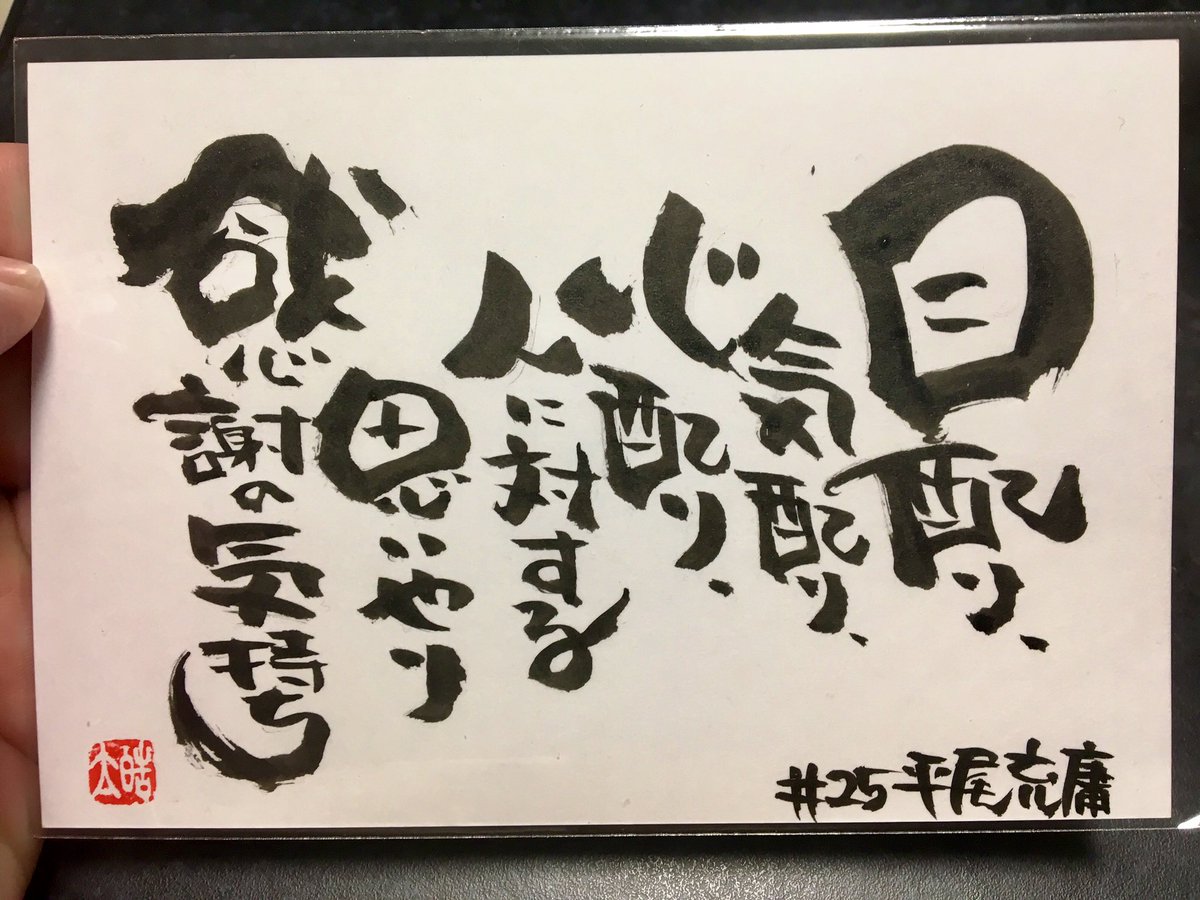 目配り、
気配り、
心配り、
人に対する
思いやり
感謝の気持ち
#25 平尾充庸